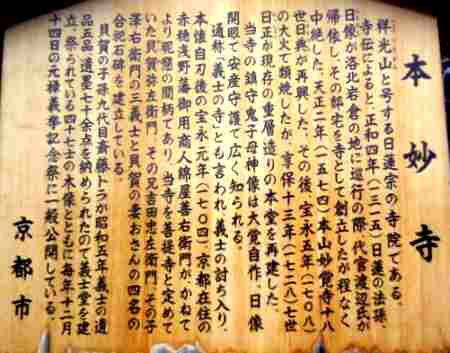 本妙寺
祥光山と号する日蓮宗の寺院である。
寺伝によると、正和四年(一三一五)日蓮の法孫、
日像が洛北岩倉の地に巡行の際、代官渡辺氏が
帰依し、その邸宅を寺として創立したが程なく
中絶した。天正二年(一五七四)本山妙覚寺十八
世日典が再興した。その後、宝永五年(一七〇八)
の大火で類焼したが、享保十三年(一七二八)七世
日正が現存の重層造りの本堂を再建した。
当寺の鎮守鬼子母神像は大覚自作、日像
開眼で安産守護で広く知られる。
通称「義士の寺」とも言われ、義士の討ち入り、
本懐自刃後の宝永元年(一七〇四)、京都在住の
赤穂浅野藩御用商人綿屋善右衛門が、かねて
より昵懇の間柄であり、当寺を菩提寺と定めて
いた貝賀弥左衛門、その兄吉田忠左衛門、その子
澤右衛門の三義士と貝賀の妻おさんの四名の
合祀石碑を建立している。
貝賀の子孫九代目斎藤トラが昭和五年義士の遺
品五品、遺墨七十余点を納められたので義士堂を建
立、祭られている四十七士の木像とともに毎年十二月
十四日の元禄義挙記念祭に一般公開している。
京都市